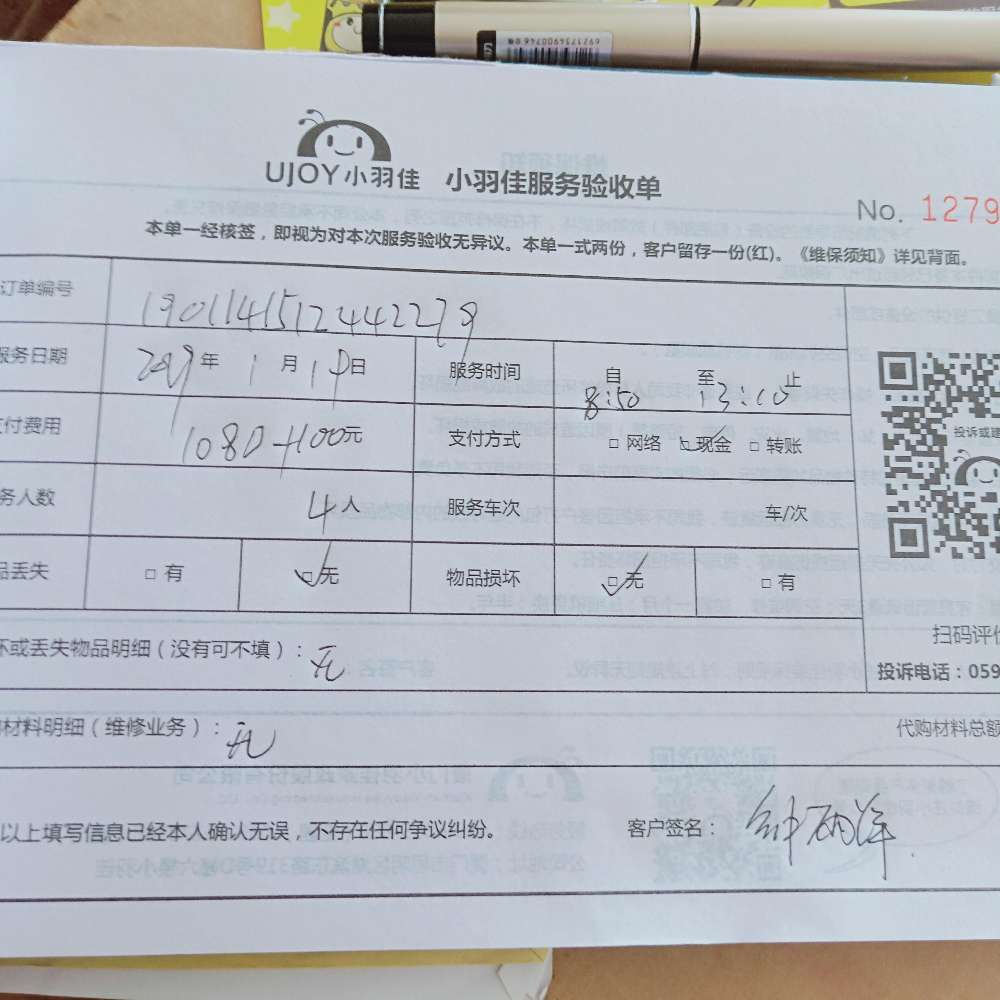 UJOY小羽佳 小羽佳服务验收单
No. 1279
本单一经核签，即视为对本次服务验收无异议。本单一式两份，客户留存一份(红)。《维保须知》详见背面。
订单编号 1901141512442279
服务日期 2019年1月19日 服务时间 自 8:50 至 13:10 止
付费用 1080+100元 支付方式 □ 网络 ☑现金 □ 转账
务人数 4人 服务车次 车/次
品丢失 □ 有 ☑无 物品损坏 ☑无 □ 有
坏或丢失物品明细（没有可不填）：无
扫码评价
投诉或建
投诉电话：059
材料明细（维修业务）：无 代购材料总额
以上填写信息已经本人确认无误，不存在任何争议纠纷。 客户签名：